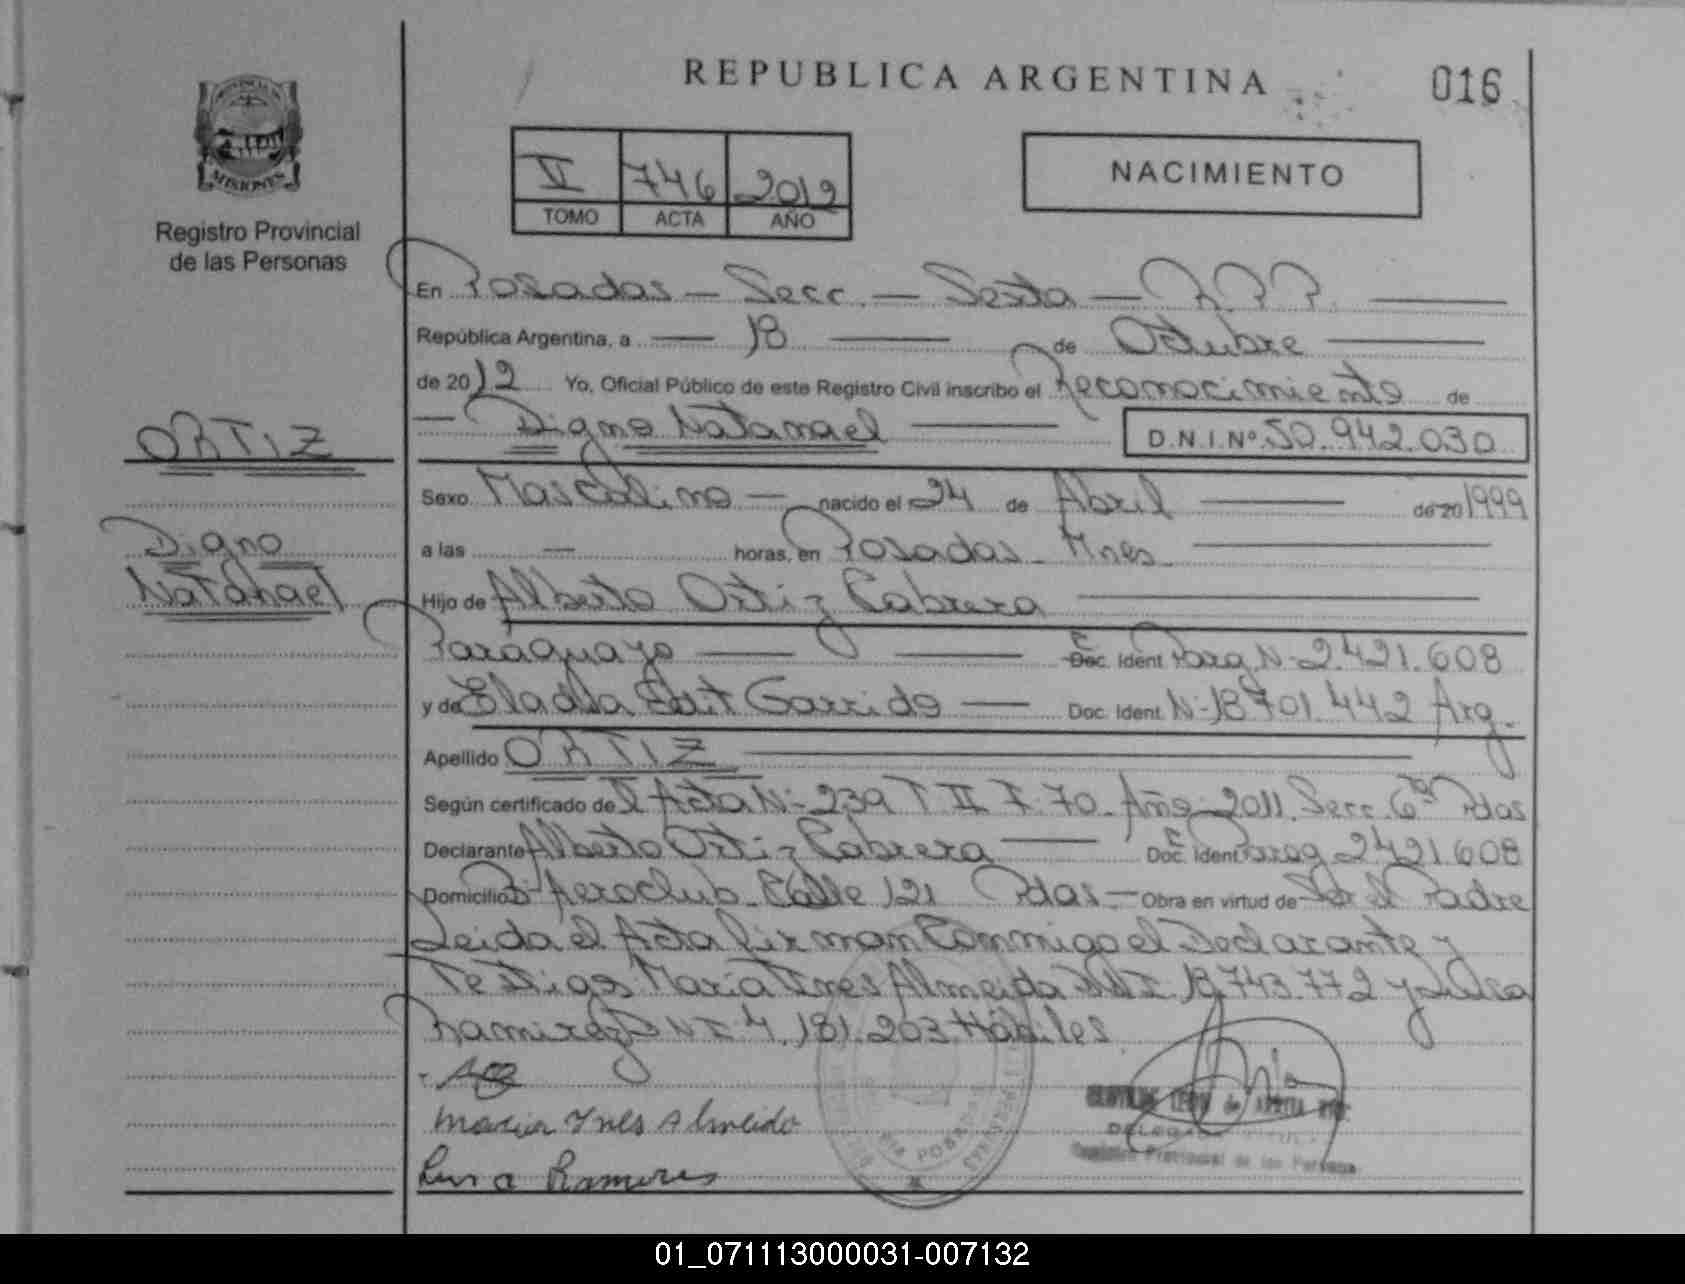 REPUBLICA ARGENTINA
016
PROVINCIA DE
MISIONES
Registro Provincial
de las Personas
VI 746 2012
TOMO ACTA AÑO
NACIMIENTO
En Posadas - Secc. - Sexta - R P P.
República Argentina, a 18 de Octubre
de 2012 Yo, Oficial Público de este Registro Civil inscribo el Reconocimiento de
Digno Natanael D.N.I.Nº 50.942.030
ORTIZ
Sexo Masculino - nacido el 24 de Abril de 20 1999
Digno
a las - horas, en Posadas - Mnes.
Natanael
Hijo de Alberto Ortiz Cabrera
Paraguayo C. Doc. Ident. Parg N- 2.421.608
y de Eladia Edit Garrido Doc. Ident. N- 18701.442 Arg.
Apellido ORTIZ
Según certificado de l Acta N- 239 T II F. 70. Año- 2011. Secc 6ta Pdas
Declarante Alberto Ortiz Cabrera C. Doc. Ident. Parag 2421608
Domicilio Bº Aeroclub. Calle 121 Pdas - Obra en virtud de Ser el Padre
Leida el Acta firman Conmigo el Declarante y
Testigos Maria Ines Almeida DNI. 18.743.772 y
Ramirez DNI 4.181.203 Hábiles.
Maria Ynes Almeida
Ramires
DELEGADA
Registro Provincial de las Personas
01_071113000031-007132